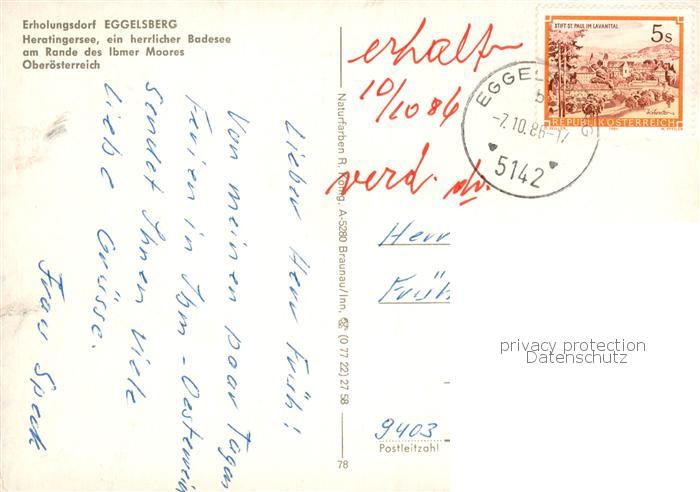 Erholungsdorf EGGELSBERG
Heratingersee, ein herrlicher Badesee
am Rande des Ibmer Moores
Oberösterreich
Lieber Herr Früh!
Von meinen paar Tagen
Ferien in Ibm-Oesterreich
sendet Ihnen viele
liebe Grüsse.
Frau Speck
Naturfarben R. König, A-5280 Braunau/Inn, ☎ (0 77 22) 27 58
78
erhalten
10/10 86
verd.
STIFT ST. PAUL IM LAVANTTAL
5s
REPUBLIK ÖSTERREICH
EGGEL G
-7.10.86-17
5142
Herr
Früh
privacy protection
Datenschutz
9403
Postleitzahl